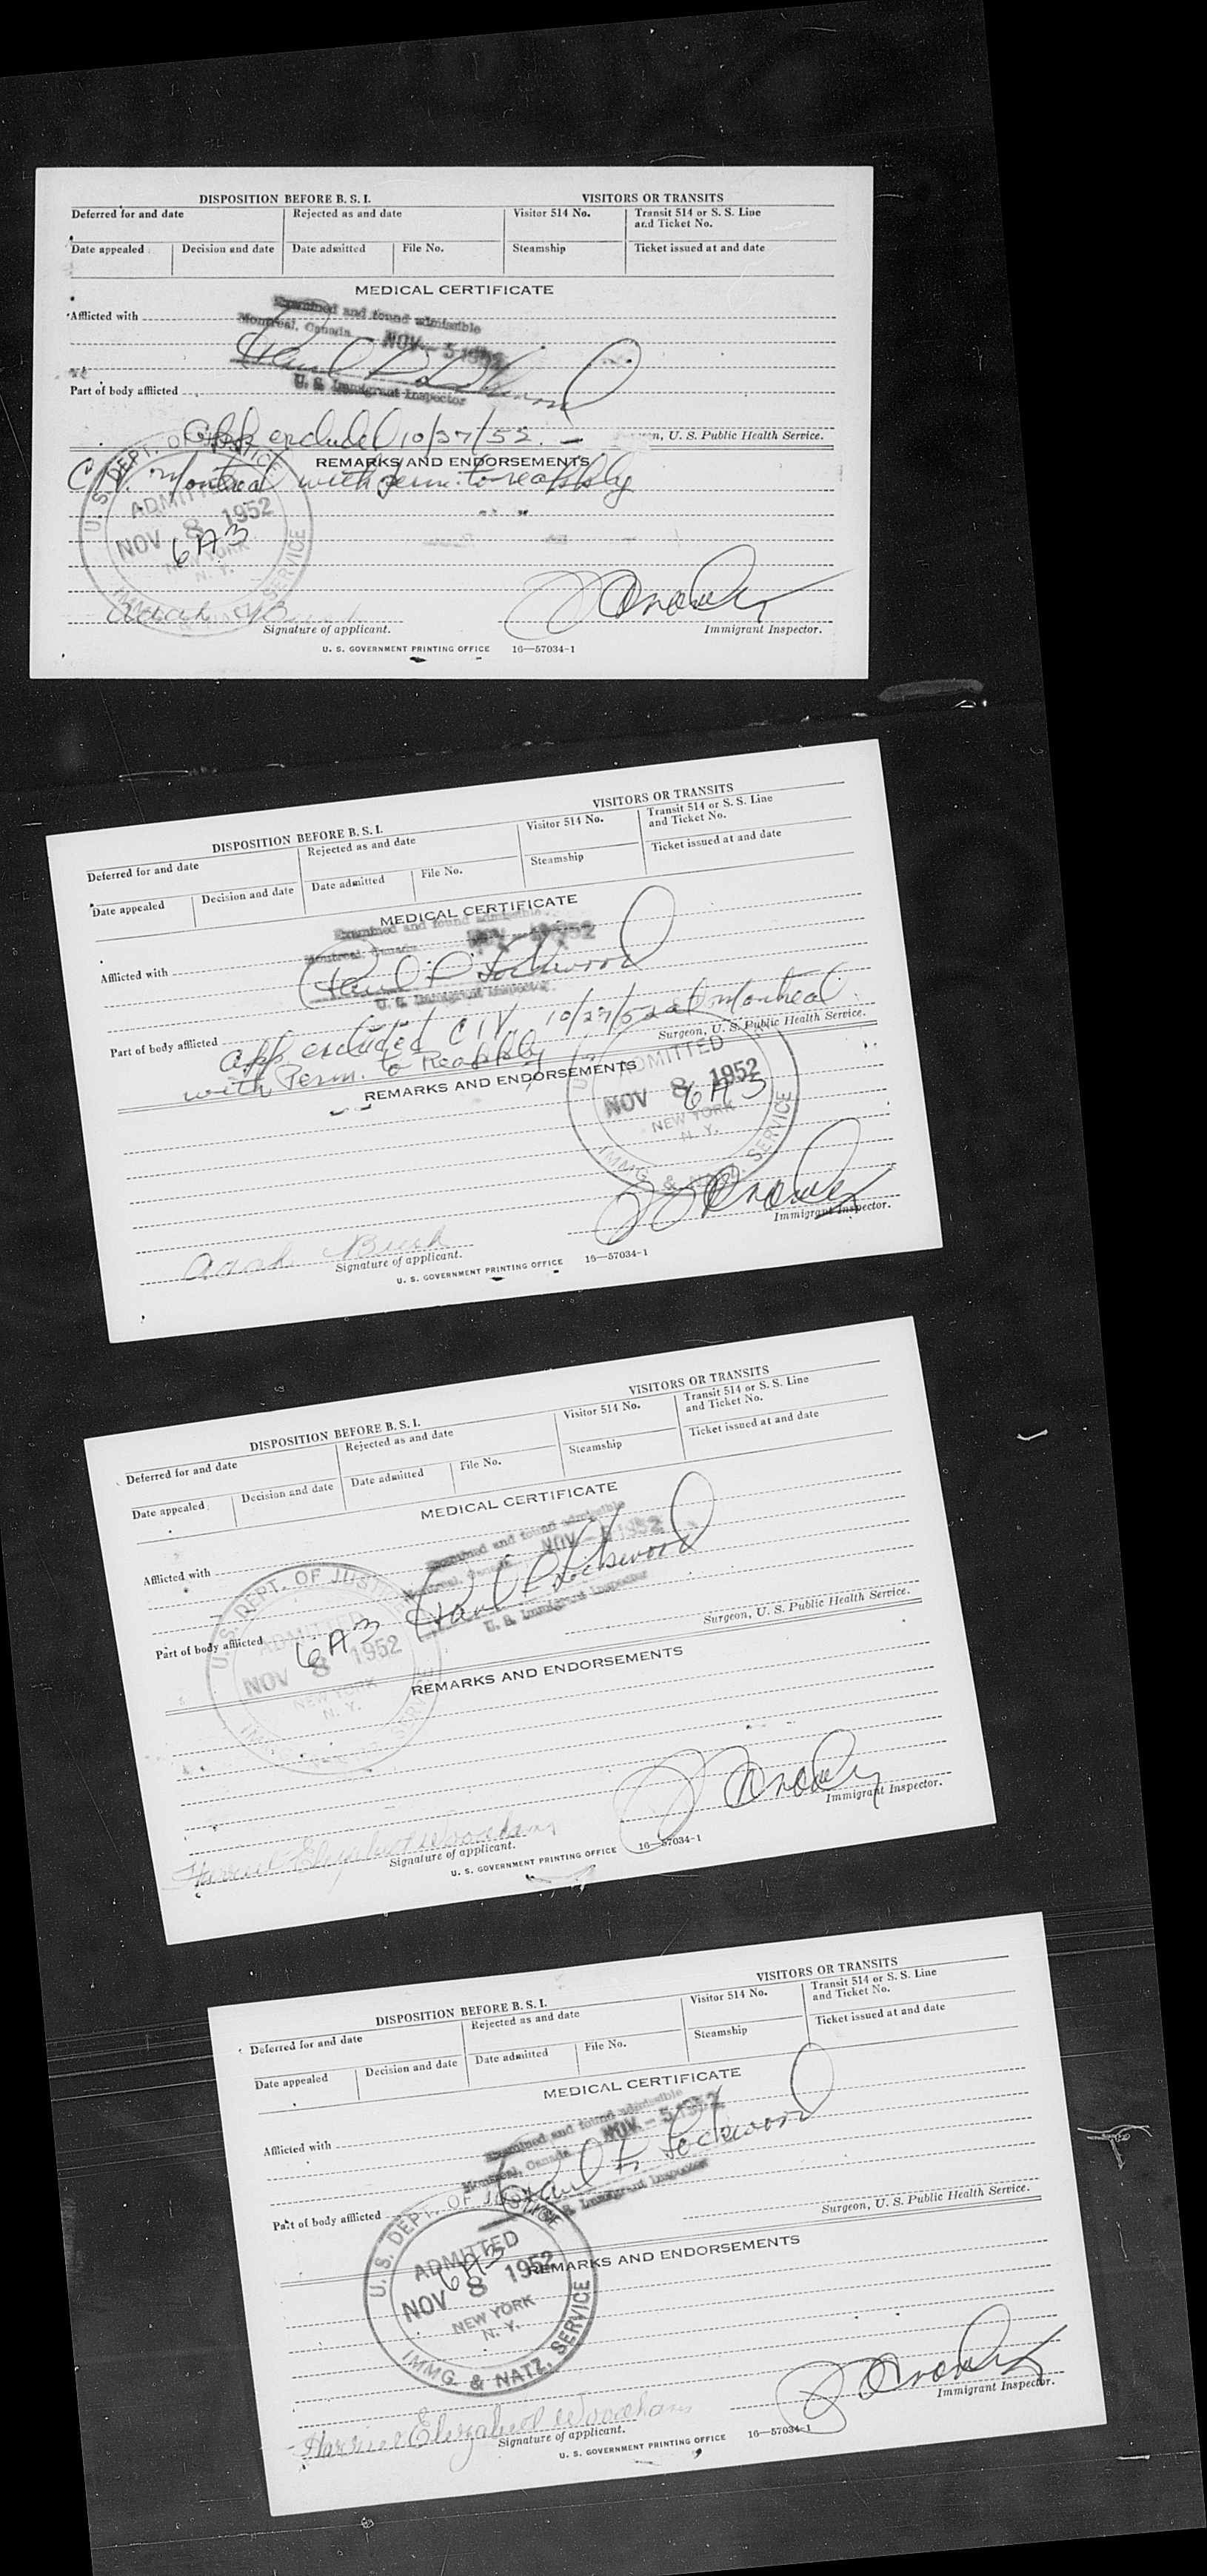 DISPOSITION BEFORE B. S. I.
VISITORS OR TRANSITS
Deferred for and date
Rejected as and date
Visitor 514 No.
Transit 514 or S. S. Line
and Ticket No.
Date appealed
Decision and date
Date admitted
File No.
Steamship
Ticket issued at and date
MEDICAL CERTIFICATE
Afflicted with
Examined and found admissible
Montreal, Canada NOV - 5 1952
U. S. Immigrant Inspector
Part of body afflicted
App excluded 10/27/52. -
U. S. Public Health Service.
REMARKS AND ENDORSEMENTS
Montreal with perm. to reapply
U. S. DEPT. OF JUSTICE
ADMITTED
NOV 8 1952
6A3
NEW YORK
N. Y.
IMMG. & NATZ. SERVICE
Signature of applicant.
Immigrant Inspector.
U. S. GOVERNMENT PRINTING OFFICE 16—57034-1
DISPOSITION BEFORE B. S. I.
VISITORS OR TRANSITS
Deferred for and date
Rejected as and date
Visitor 514 No.
Transit 514 or S. S. Line
and Ticket No.
Date appealed
Decision and date
Date admitted
File No.
Steamship
Ticket issued at and date
MEDICAL CERTIFICATE
Examined and found admissible
Montreal, Canada 1952
Afflicted with
Paul F Lockwood
U. S. Immigrant Inspector
Part of body afflicted
App excluded C I V 10/27/52 at Montreal
with Perm. to Reapply
Surgeon, U. S. Public Health Service.
REMARKS AND ENDORSEMENTS
ADMITTED
NOV 8 1952
6A3
NEW YORK
N. Y.
IMMG. & NATZ. SERVICE
Immigrant Inspector.
Signature of applicant.
U. S. GOVERNMENT PRINTING OFFICE 16—57034-1
DISPOSITION BEFORE B. S. I.
VISITORS OR TRANSITS
Deferred for and date
Rejected as and date
Visitor 514 No.
Transit 514 or S. S. Line
and Ticket No.
Date appealed
Decision and date
Date admitted
File No.
Steamship
Ticket issued at and date
MEDICAL CERTIFICATE
Examined and found admissible
Montreal, Canada NOV - 5 1952
Afflicted with
Paul F Lockwood
U. S. Immigrant Inspector
Part of body afflicted
Surgeon, U. S. Public Health Service.
U. S. DEPT. OF JUSTICE
ADMITTED
6A3
NOV 8 1952
NEW YORK
N. Y.
REMARKS AND ENDORSEMENTS
Immigrant Inspector.
Harriet Elizabeth Woodham
Signature of applicant.
U. S. GOVERNMENT PRINTING OFFICE 16—57034-1
DISPOSITION BEFORE B. S. I.
VISITORS OR TRANSITS
Deferred for and date
Rejected as and date
Visitor 514 No.
Transit 514 or S. S. Line
and Ticket No.
Date appealed
Decision and date
Date admitted
File No.
Steamship
Ticket issued at and date
MEDICAL CERTIFICATE
Examined and found admissible
Montreal, Canada NOV - 5 1952
Afflicted with
Paul F Lockwood
U. S. Immigrant Inspector
Part of body afflicted
Surgeon, U. S. Public Health Service.
U. S. DEPT. OF JUSTICE
ADMITTED
6A3
NOV 8 1952
NEW YORK
N. Y.
IMMG. & NATZ. SERVICE
REMARKS AND ENDORSEMENTS
Immigrant Inspector.
Harriet Elizabeth Woodham
Signature of applicant.
U. S. GOVERNMENT PRINTING OFFICE 16—57034-1